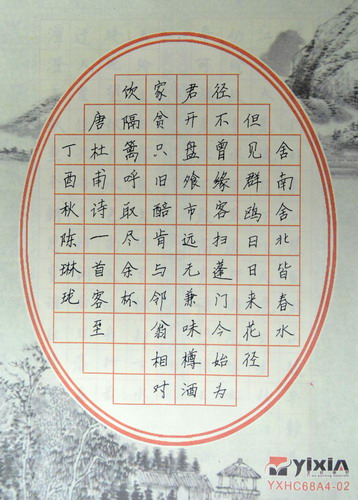 舍南舍北皆春水
但见群鸥日日来花径
径不曾缘客扫蓬门今始为
君开盘飧市远无兼味樽酒
家贫只旧醅肯与邻翁相对
饮隔篱呼取尽余杯
唐杜甫诗一首客至
丁酉秋陈琳珑
yixin
YXHC68A4-02